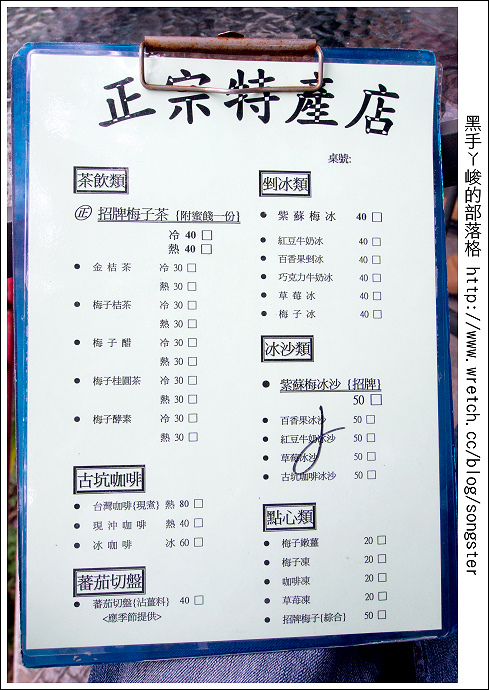 正宗特產店
桌號:
茶飲類
㊣ 招牌梅子茶 {附蜜餞一份}
冷 40 □
熱 40 □
● 金桔茶 冷 30 □
熱 30 □
● 梅子桔茶 冷 30 □
熱 30 □
● 梅子醋 冷 30 □
熱 30 □
● 梅子桂圓茶 冷 30 □
熱 30 □
● 梅子酵素 冷 30 □
熱 30 □
古坑咖啡
● 台灣咖啡{現煮} 熱 80 □
● 現沖咖啡 熱 40 □
● 冰咖啡 冰 60 □
蕃茄切盤
● 蕃茄切盤{沾薑料} 40 □
<應季節提供>
剉冰類
● 紫蘇梅冰 40 □
● 紅豆牛奶冰 40 □
● 百香果剉冰 40 □
● 巧克力牛奶冰 40 □
● 草莓冰 40 □
● 梅子冰 40 □
冰沙類
● 紫蘇梅冰沙 {招牌}
50 □
● 百香果冰沙 50 □
● 紅豆牛奶冰沙 50 □
● 草莓冰沙 50 □
● 古坑咖啡冰沙 50 □
點心類
● 梅子嫩薑 20 □
● 梅子凍 20 □
● 咖啡凍 20 □
● 草莓凍 20 □
● 招牌梅子{綜合} 50 □
黑手ㄚ峻的部落格 http://www.wretch.cc/blog/songster